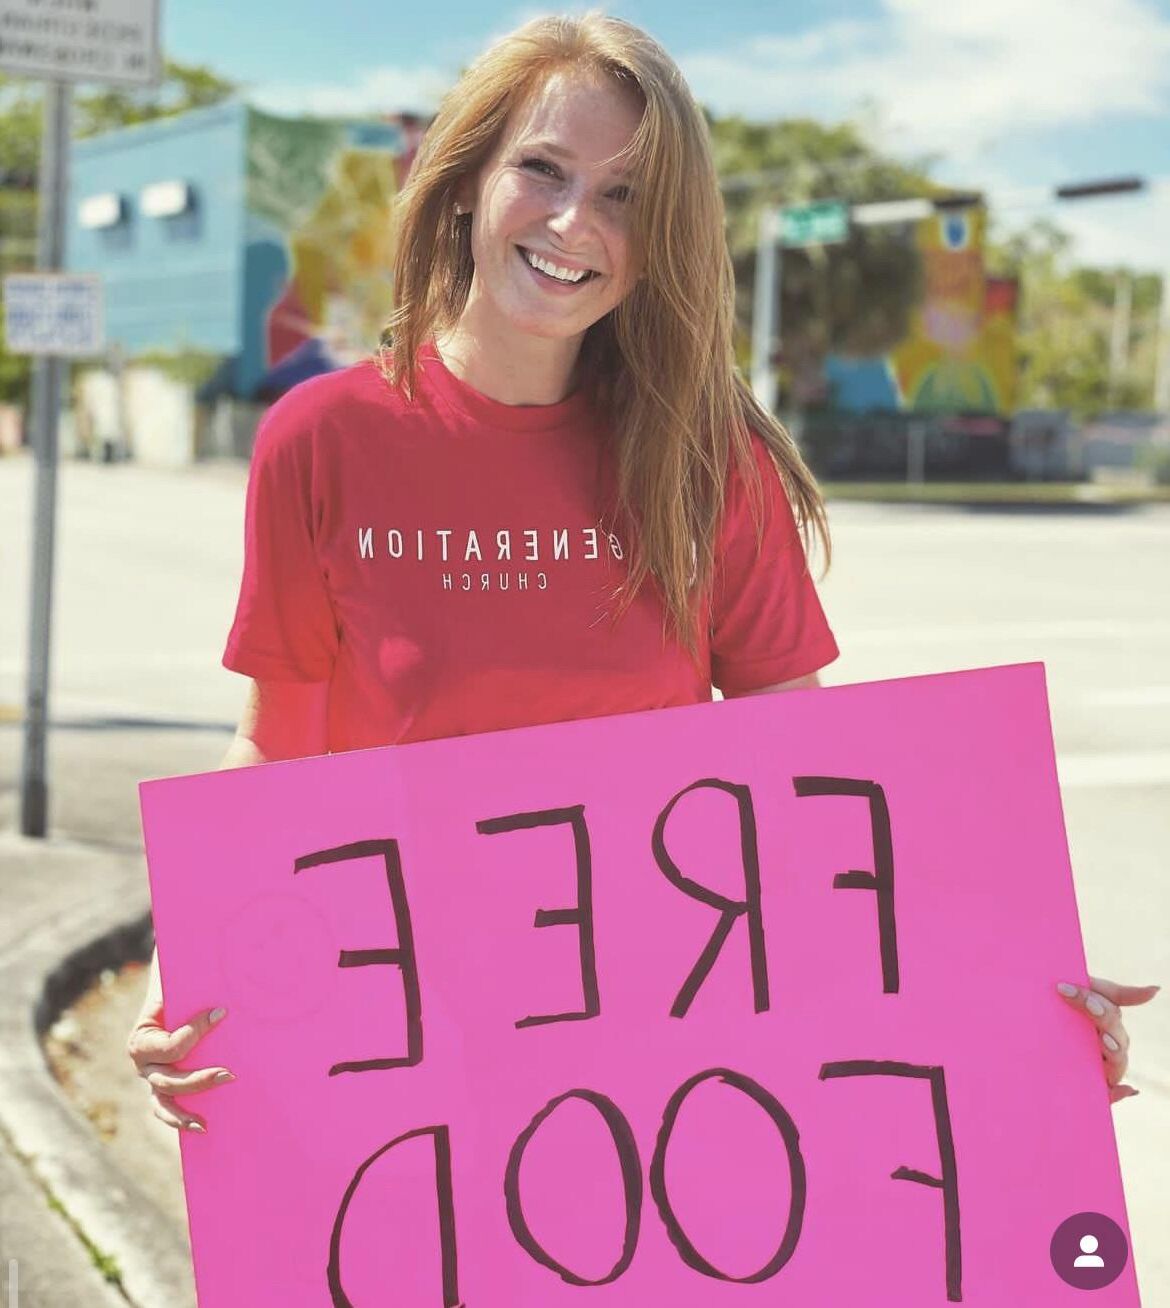 GENERATION
CHURCH
FREE
FOOD